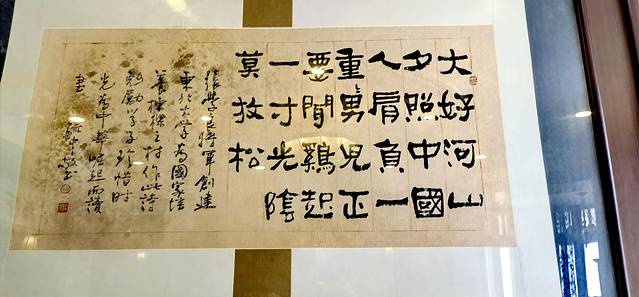 大好河山
夕照中國
人肩負一
重男兒正
要聞鷄起
一寸光陰
莫放松
張學良將軍創建
東北大學為國家培
養棟樑之材作此詩
勉勵學子珍惜時
光為中華崛起而讀
書